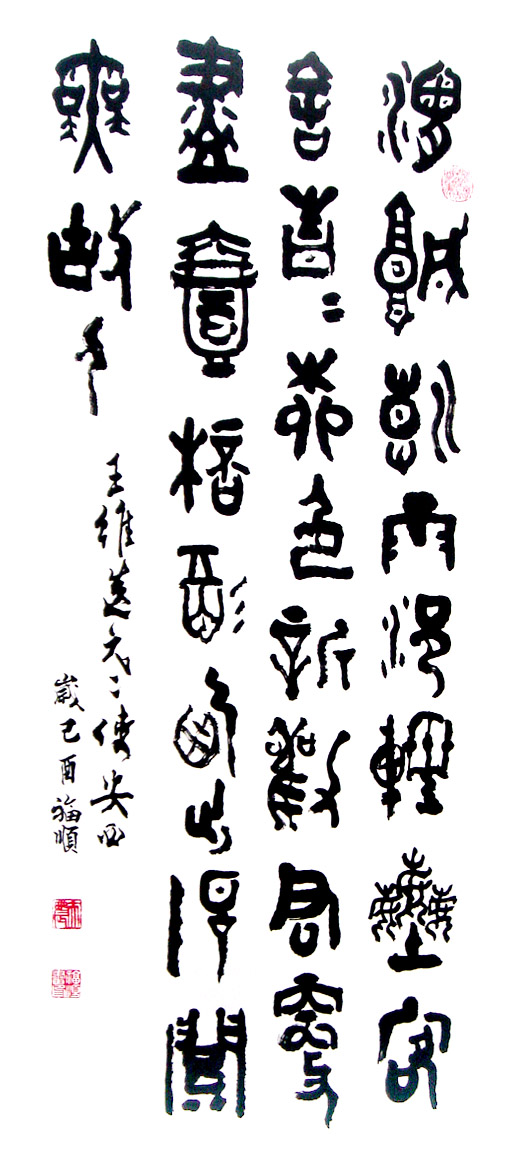 渭城朝雨浥輕塵客
舍青〻柳色新勸君更
盡壹桮酒西出陽關
無故人
王維送元二使安西
歲己酉福順